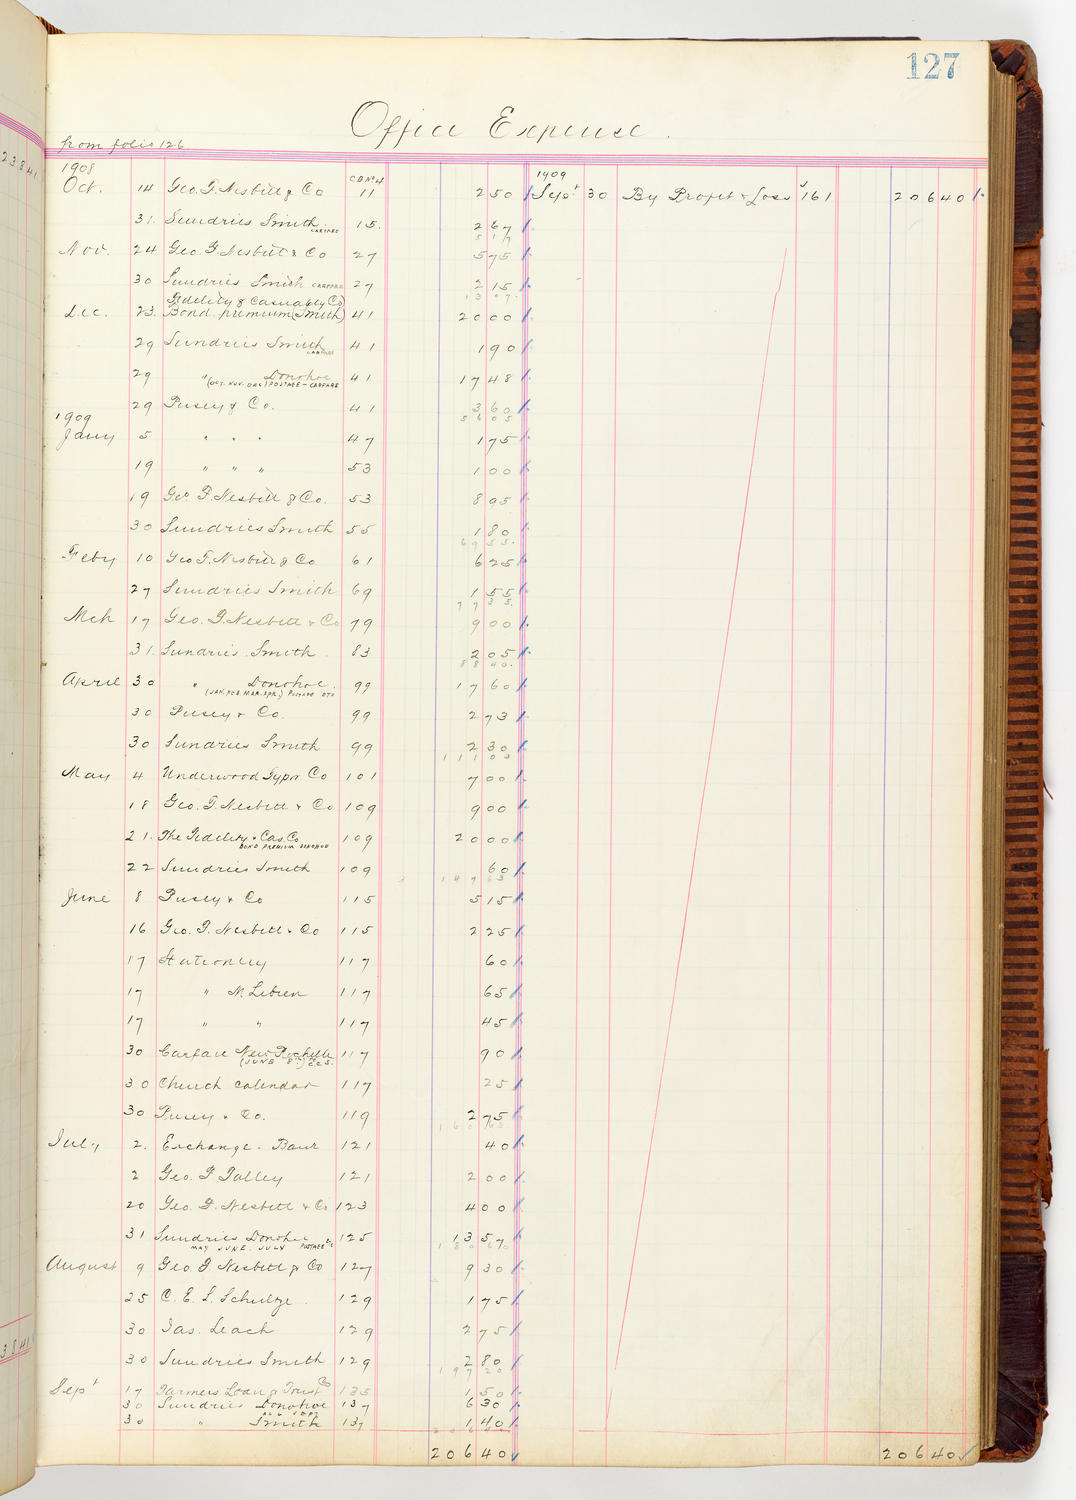 127
Office Expense.
from folio 126
1908
CB No 4
1909
Oct. 14 Geo. F. Nesbitt & Co 11 2 50 Sept 30 By Profit & Loss 161 206 40
31. Sundries Smith CARFARE 15. 2 67
5 17
Nov. 24 Geo. F. Nesbitt & Co 27 5 75
30 Sundries Smith CARFARE 27 2 15
13 07
Fidelity & Casualty Co
Dec. 23. Bond premium (Smith) 41 20 00
29 Sundries Smith CARFARE 41 1 90
29 " Donohoe 41 17 48
(OCT. NOV. DEC) POSTAGE - CARFARE
29 Pusey & Co. 41 3 60
56 05
1909
Jany 5 " " " 47 1 75
19 " " " 53 1 00
19 Geo. F. Nesbitt & Co. 53 8 95
30 Sundries Smith 55 1 80
69 55
Feby 10 Geo F. Nesbitt & Co 61 6 25
27 Sundries Smith 69 1 55
77 35
Mch 17 Geo. F. Nesbitt & Co 79 9 00
31. Sundries Smith 83 2 05
88 40
April 30 " Donohoe. 99 17 60
(JAN. FEB. MAR. APR.) POSTAGE ETC
30 Pusey & Co. 99 2 73
30 Sundries Smith 99 2 30
111 03
May 4 Underwood Typr. Co 101 7 00
18 Geo. F. Nesbitt & Co 109 9 00
21. The Fidelity & Cas. Co 109 20 00
BOND PREMIUM DONOHOE
22 Sundries Smith 109 60
147 63
June 8 Pusey & Co 115 5 15
16 Geo. F. Nesbitt & Co 115 2 25
17 Stationery 117 60
17 " N. Libien 117 65
17 " " 117 45
30 Carfare New Rochelle 117 90
(JUNE 8TH) C.C.S.
30 Church calendar 117 25
30 Pusey & Co. 119 2 75
160 63
July 2. Exchange - Baur 121 40
2 Geo. F Talley 121 2 00
20 Geo. F. Nesbitt & Co 123 4 00
31 Sundries Donohoe 125 13 57
MAY JUNE. JULY POSTAGE &C
180 60
August 9 Geo. F. Nesbitt & Co 127 9 30
25 C. E. L. Schultze. 129 1 75
30 Jas. Leach 129 2 75
30 Sundries Smith 129 2 80
197 20
Sept 17 Farmers Loan & Trust Co 135 1 50
30 Sundries Donohoe 137 6 30
30 " Smith 137 1 40
206 40 206 40